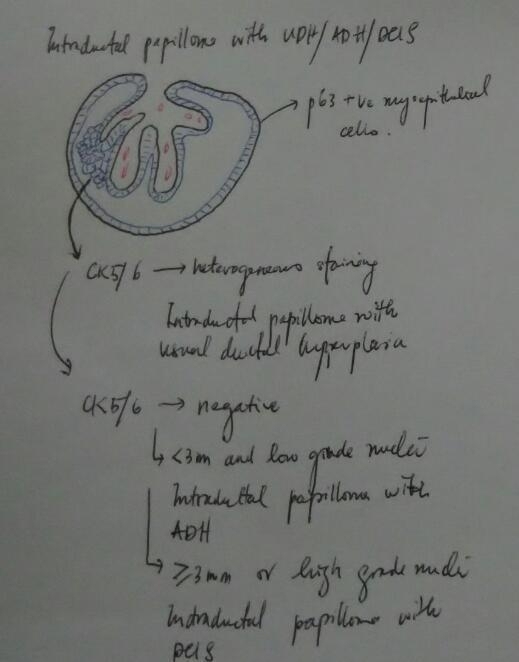 Intraductal papilloma with UDH/ADH/DCIS
p63 +ve myoepithelial
cells.
CK5/6 → heterogeneous staining
Intraductal papilloma with
usual ductal hyperplasia
CK5/6 → negative
<3mm and low grade nuclei
Intraductal papilloma with
ADH
≥3mm or high grade nuclei
Intraductal papilloma with
DCIS